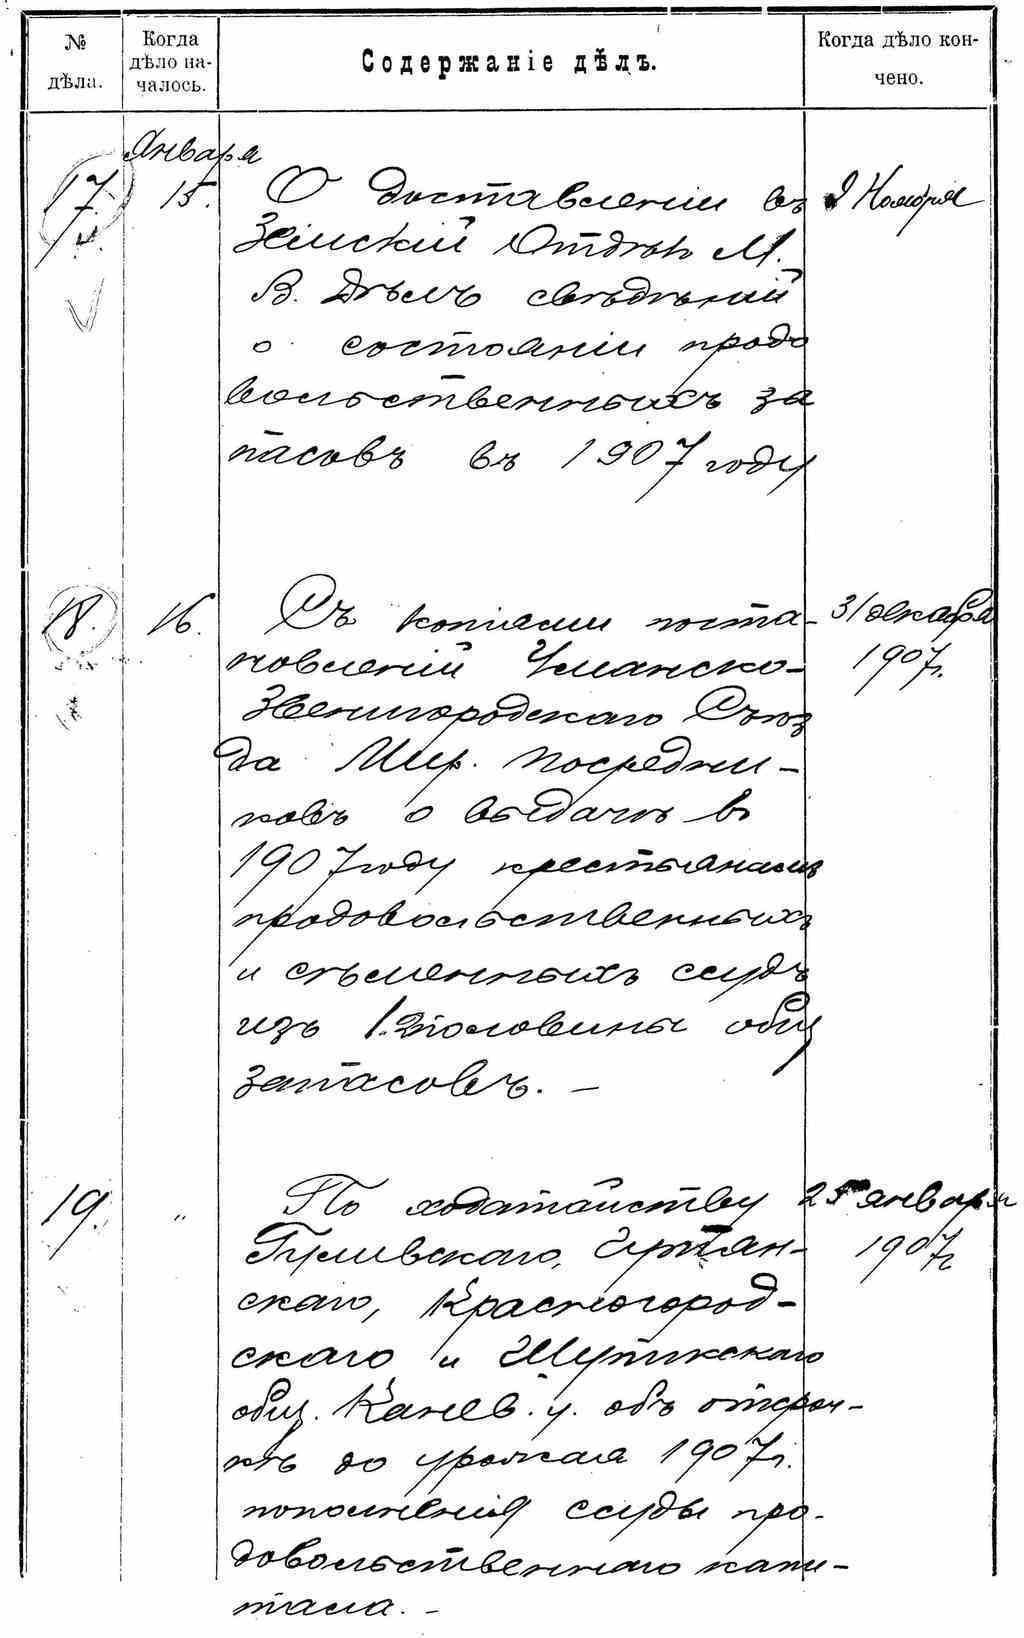 № дѣла.
Когда дѣло на-чалось.
Содержаніе дѣлъ.
Когда дѣло кон-чено.
Января
17. 15. О доставленіи въ 2 Ноября
Земскій Отдѣлъ М.
В. Дѣлъ свѣдѣній
о состояніи продо
вольственныхъ за
пасовъ въ 1907 году
18. 16. Съ копіями поста- 31 декабря
новленій Уманско- 1907г.
Звенигородскаго Съѣз
да Мир. Посредни-
ковъ о выдачѣ въ
1907 году крестьянамъ
продовольственныхъ
и сѣменныхъ ссудъ
изъ 1. половины общ
запасовъ. -
19. " По ходатайству 25 января
1907г
скаго, Красногород-
скаго и
общ. Канев. у. объ отсроч-
кѣ до урожая 1907г.
пополненія ссуды про-
довольственнаго капи-
тала. -